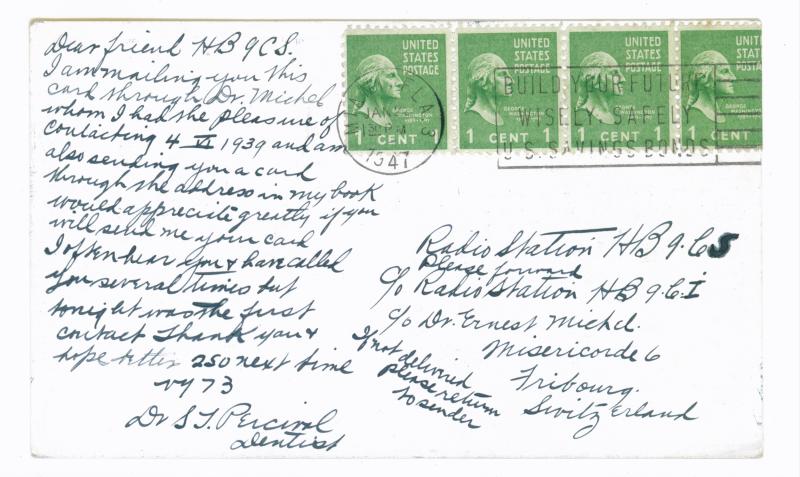 Dear friend HB9CS.
I am mailing you this
card through Dr. Michel
whom I had the pleasure of
contacting 4 VI 1939 and am
also sending you a card
through the address in my book
would appreciate greatly if you
will send me your card
I often hear you & have called
you several times but
tonight was the first
contact Thank you &
hope better 2SO next time
vy 73
Dr S T. Percival
Dentist
UNITED STATES POSTAGE
GEORGE WASHINGTON
1 CENT 1
UNITED STATES POSTAGE
GEORGE WASHINGTON
1 CENT
UNITED STATES POSTAGE
GEORGE WASHINGTON
1 CENT
UNITED STATES POSTAGE
1 CENT
JAN
130 PM
1947
BUILD YOUR FUTURE
WISELY. SAFELY
U.S. SAVINGS BONDS
Radio Station HB9.CS
Please forward
c/o Radio Station HB9.C.I
c/o Dr. Ernest Michel.
Misericorde 6
Fribourg.
Switzerland
If not
delivered
please return
to sender